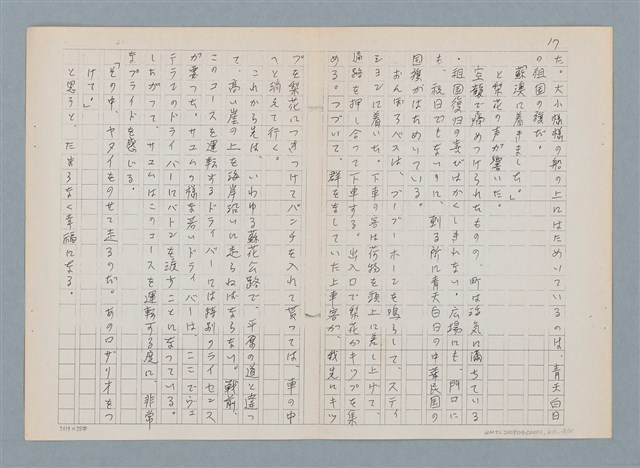 17
た。大小様様の船の上にはためいているのは、青天白日
の祖国の旗だ。
「蘇澳に着きました。」
と梨花の声が響いた。
空襲で痛めつけられたものの、町は活気に満ちている
。祖国復帰の喜びはかくしきれない。広場にも、門口に
も、祝日でもないのに、到る所に青天白日の中華民国の
国旗がはためいている。
おんぼろバスは、ブーブーホーンを鳴らして、ステイ
ションに着いた。下車の客は荷物を頭上に差し上げて、
通路を押し合って下車する。出入口で梨花がキップを集
める。つづいて、群をなしていた上車客が、我先にキッ
プを梨花につきつけてパンチを入れて貰っては、車の中
へと消えて行く。
これから先は、いわゆる蘇花公路で、平常の道と違っ
て、高い崖の上を海岸沿いに走らねばならない。戦前、
このコースを運転するドライバーには特別のライセンス
が要った。サユムの様な若いドライバーは、ここでヴェ
テランのドライバーにバトンを渡すことになっている。
したがって、サユムはこのコースを運転する度に、非常
なプライドを感じる。
「その中、ヤタイをのせて走るのだ。あのロザリオをつ
けて。」
と思うと、たまらなく幸福になる。